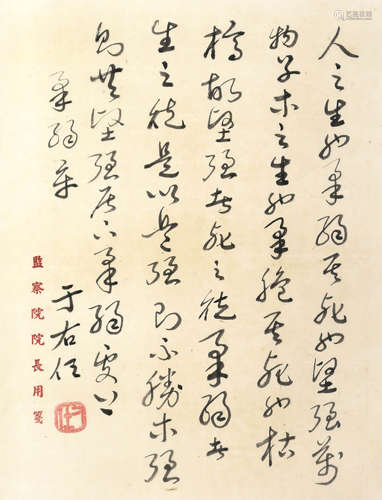 人之生也柔弱其死也堅強萬
物草木之生也柔脆其死也枯
槁故堅強者死之徒柔弱者
生之徒是以兵強即不勝木強
則共堅強居下柔弱處上
柔弱章
于右任
監察院院長用箋